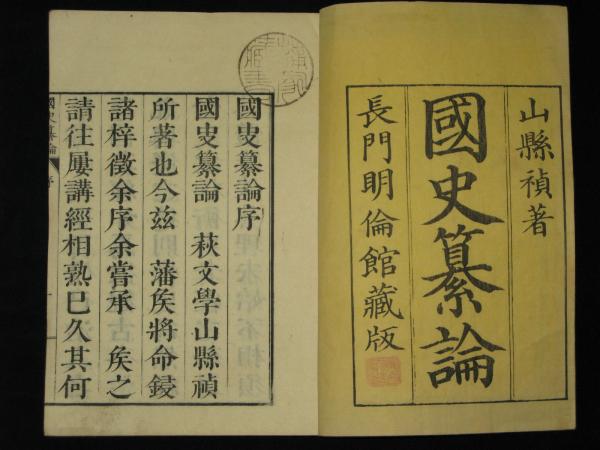 山縣禎著
國史纂論
長門明倫館藏版
國史纂論序
國史纂論 萩文學山縣禎
所著也今玆 藩矦將命鋟
諸梓徵余序余嘗承 矦之
請往屢講經相熟已久其何
國史纂論 序